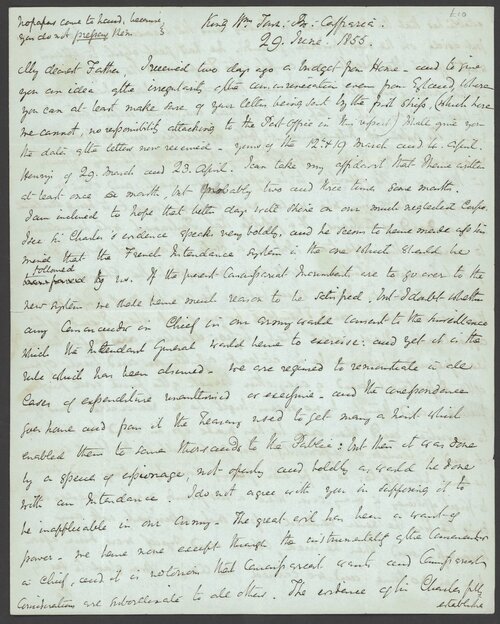 no papers come to hand, because
you do not prepay them
£10
King Wm Town: Br: Caffraria.
29. June. 1855.
My dearest Father I received two days ago a budget from Home - and to give
you an idea of the irregularity of the communication even from England, where
you can at least make sure of your letters being sent by the mail ships, (which here
we cannot, no responsibility attaching to the Post Office in this respect) I shall give you
the dates of the letters now received - yours of the 12 & 19 March and 10 April.
Henry's of 29. March and 23. April. I can take my affidavit that I have written
at least once a month, but probably two and three times some months.
I am inclined to hope that better days will shine on our much neglected Corps.
I see Sir Charles's evidence speaks very boldly, and he seems to have made up his
mind that the French Intendance system is the one which should be
followed
by us. If the present Commissariat Incumbents are to go over to the
new system we shall have much reason to be satisfied, but I doubt whether
any Commander in Chief in our Army would consent to the surveillance
which the Intendant General would have to exercise: and yet it is the
rule which has been abused - we are required to remonstrate in all
Cases of expenditure unauthorised or excessive - and the correspondence
goes home and from it the Treasury used to get many a hint which
enabled them to save thousands to the Public: but then it was done
by a species of espionage, not openly and boldly as would be done
with an Intendance. I do not agree with you in supposing it to
be inapplicable in our Army - The great evil has been a want of
power - we have none except through the instrumentality of the Commander
in Chief, and it is notorious that Commissariat wants and Commissariat
Considerations are subordinate to all others. The evidence of Sir Charles fully
establishes